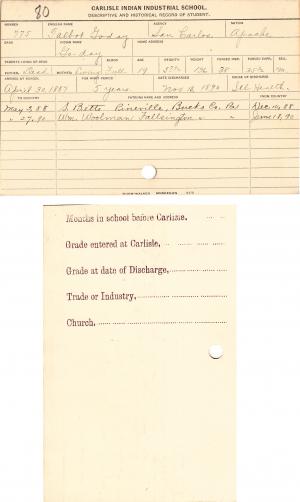 80
CARLISLE INDIAN INDUSTRIAL SCHOOL.
DESCRIPTIVE AND HISTORICAL RECORD OF STUDENT.
NUMBER ENGLISH NAME AGENCY NATION
775 Talbot Goday San Carlos Apache
BAND INDIAN NAME HOME ADDRESS
Goday
PARENTS LIVING OR DEAD BLOOD AGE HEIGHT WEIGHT FORCED INSP. FORCED EXPR. SEX
FATHER, Dead MOTHER, Living Full 19 136 38 M.
ARRIVED AT SCHOOL FOR WHAT PERIOD DATE DISCHARGED CAUSE OF DISCHARGE
April 30, 1887 5 years Nov 12, 1890 Ill Health.
TO COUNTRY PATRONS NAME AND ADDRESS FROM COUNTRY
May 3, 88 S. Betts Pineville, Bucks Co. Pa. Dec. 10, 88
" 27, 90 Wm. Woolman Fallsington " " June 18, 90
Months in school before Carlisle,
Grade entered at Carlisle,
Grade at date of Discharge,
Trade or Industry,
Church,